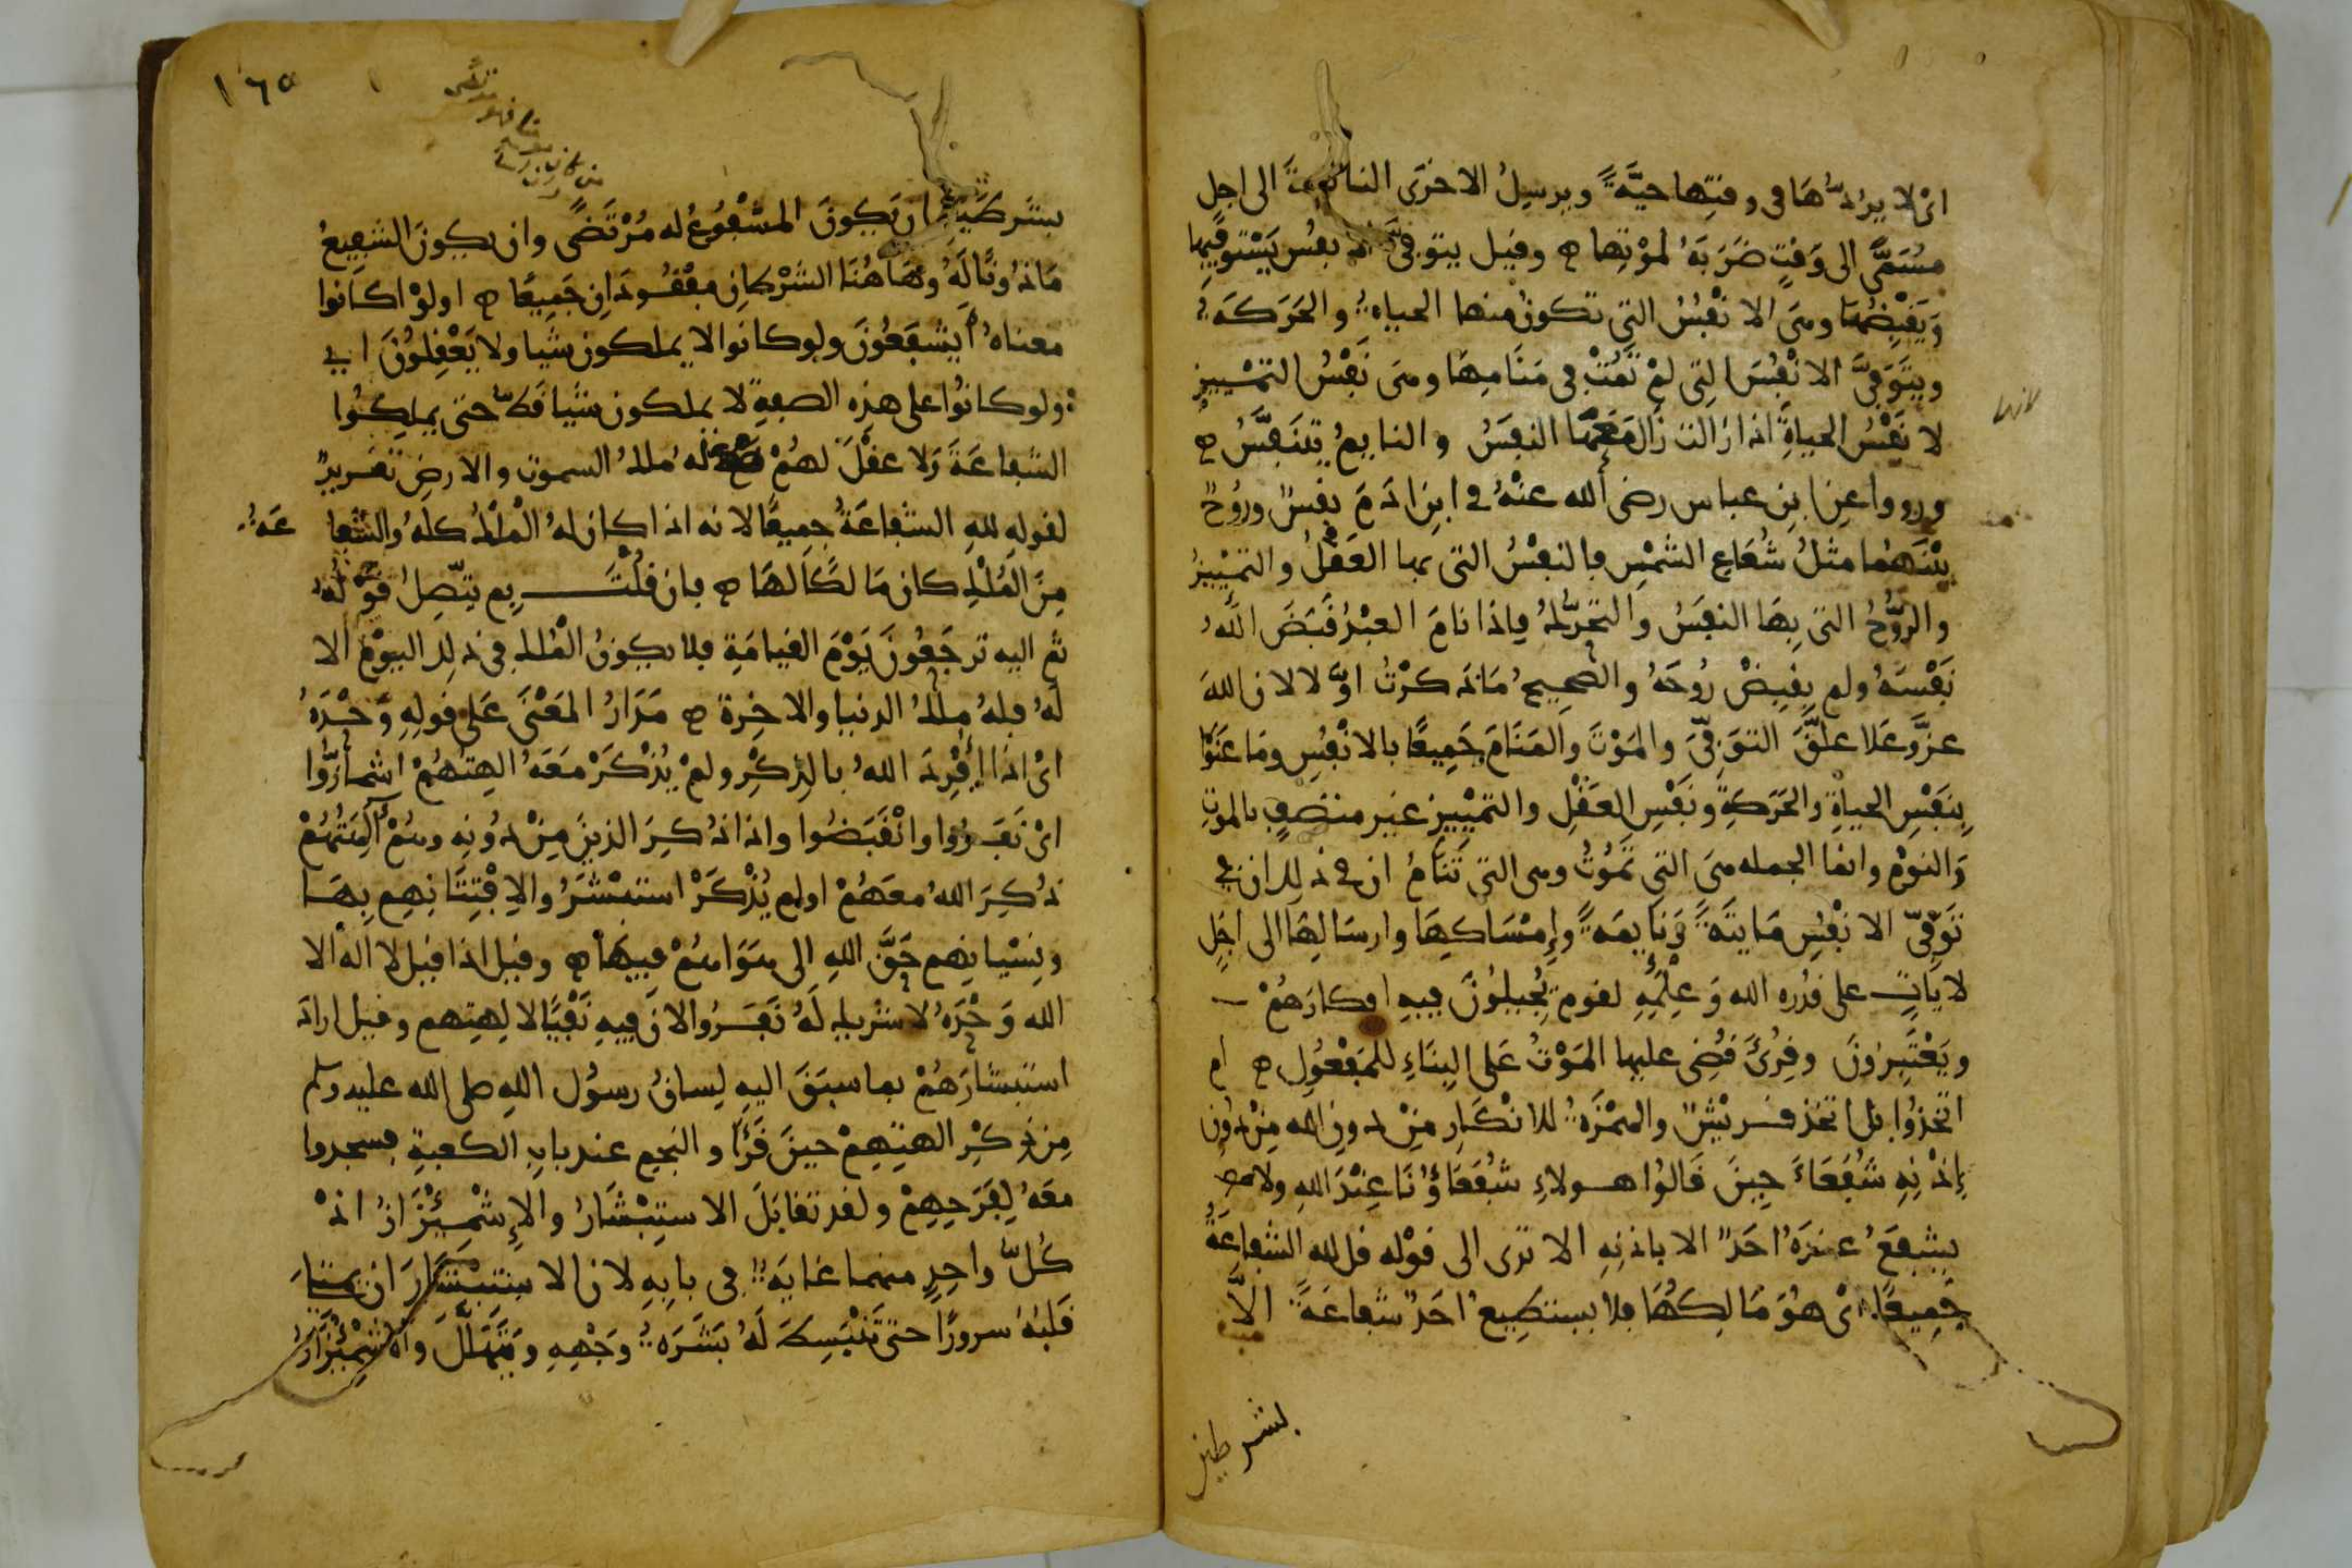 اى لا يردها فى وقتها حية ويرسل الاخرى النائمة الى اجل
مسمى الى وقت ضربه لموتها ه وقيل يتوفى الانفس يستوفيها
ويقبضها وهى الانفس التى تكون منها الحياة والحركة
ويتوفى الانفس التى لم تمت فى منامها وهى نفس التمييز
لا نفس الحياة اذا زالت زال معها النفس والنايم يتنفس ه
ورووا عن ابن عباس رضى الله عنه فى ابن ادم نفس وروح
بينهما مثل شعاع الشمس فالنفس التى بها العقل والتمييز
والروح التى بها النفس والتحرك فاذا نام العبد قبض الله
نفسه ولم يقبض روحه والصحيح ما ذكرت اولا لان الله
عز وعلا علق التوفى والموت والمنام جميعا بالانفس وما عنوا
بنفس الحياة والحركة ونفس العقل والتمييز غير متصف بالموت
والنوم وانما الجمله هى التى تموت وهى التى تنام ان فى ذلك ان فى
توفى الانفس مايتة ونايمة وامساكها وارسالها الى اجل
لايات على قدره الله وعلمه لقوم يجيلون فيه افكارهم
ويعتبرون وقرئ قضى عليها الموت على البناء للمفعول ه ام
اتخذوا بل اتخذ قريش والهمزة للانكار من دون الله من دون
اذنه شفعاء حين قالوا هولاء شفعاؤنا عند الله ولا
يشفع عنده احد الا باذنه الا ترى الى قوله قل لله الشفاعة
جميعا اى هو مالكها فلا يستطيع احد شفاعة الا
بشرطين
١٦٥
بشرطين ان يكون المشفوع له مرتضى وان يكون الشفيع
ماذونا له وهاهنا الشرطان مفقودان جميعا ه اولو كانوا
معناه ايشفعون ولو كانوا لا يملكون شيا ولا يعقلون اى
ولو كانوا على هذه الصفة لا يملكون شيا قط حتى يملكوا
الشفاعة ولا عقل لهم له ملك السموت والارض تقرير
لقوله لله الشفاعة جميعا لانه اذا كان له الملك كله والشفاعة
من الملك كان مالكا لها ه فان قلت بم يتصل قوله
ثم اليه ترجعون يوم القيامة فلا يكون الملك فى ذلك اليوم الا
له فله ملك الدنيا والاخرة ه مدار المعنى على قوله وحده
اى اذا افرد الله بالذكر ولم يذكر معه الهتهم اشمأزوا
اى نفروا وانقبضوا واذا ذكر الذين من دونه وهم الهتهم
ذكر الله معهم اولم يذكر استبشروا لافتتانهم بها
ونسيانهم حق الله الى هواهم فيها ه وقيل اذا قيل لا اله الا
الله وحده لا شريك له نفروا لان فيه نفيا لالهتهم وقيل اراد
استبشارهم بما سبق اليه لسان رسول الله صلى الله عليه وسلم
من ذكر الهتهم حين قرأ والنجم عند باب الكعبة فسجدوا
معه لفرحهم ولقد تقابل الاستبشار والاشمئزاز اذ
كل واحد منهما غاية فى بابه لان الاستبشار ان يمتلئ
قلبه سرورا حتى تنبسط له بشرة وجهه ويتهلل والاشمئزاز